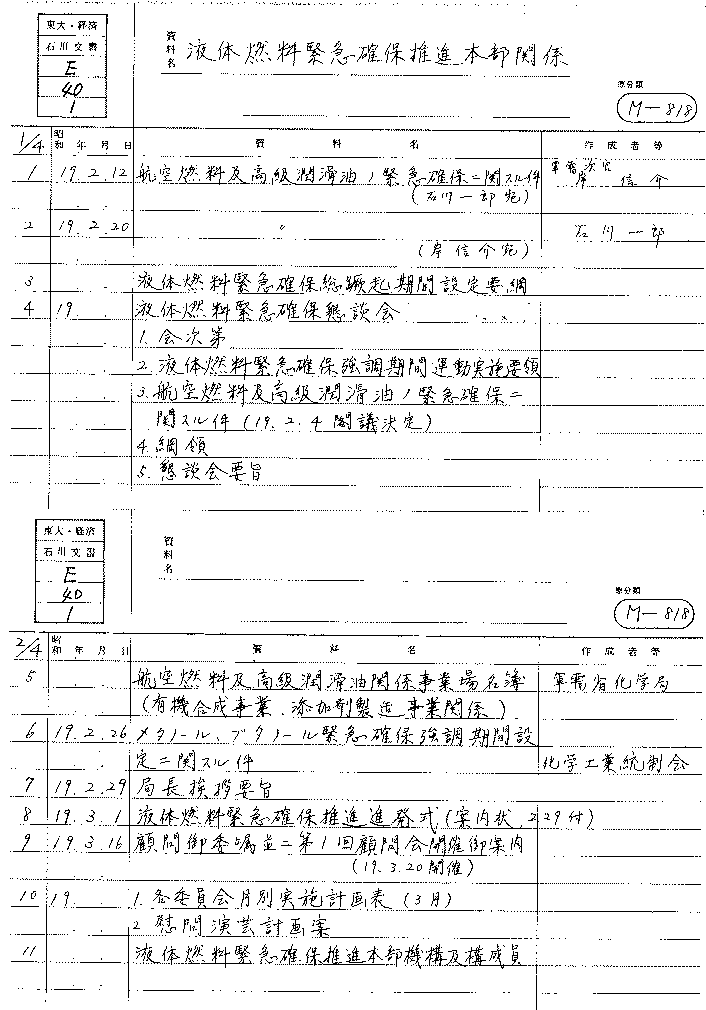 東大・経済
石川文書
E
40
1
資料名 液体燃料緊急確保推進本部関係
原分類
M-818
1/4 昭和 年 月 日 資料名 作成者等
1 19.2.12 航空燃料及高級潤滑油ノ緊急確保ニ関スル件 軍需次官
(石川一郎宛) 岸信介
2 19.2.20 〃 石川一郎
(岸信介宛)
3 液体燃料緊急確保総蹶起期間設定要綱
4 19. 液体燃料緊急確保懇談会
1.会次第
2.液体燃料緊急確保強調期間運動実施要領
3.航空燃料及高級潤滑油ノ緊急確保ニ
関スル件(19.2.4閣議決定)
4.綱領
5.懇談会要旨
東大・経済
石川文書
E
40
1
資料名
原分類
M-818
2/4 昭和 年 月 日 資料名 作成者等
5 航空燃料及高級潤滑油関係事業場名簿 軍需省化学局
(有機合成事業、添加剤製造事業関係)
6 19.2.26 メタノール、ブタノール緊急確保強調期間設
定ニ関スル件 化学工業統制会
7 19.2.29 局長挨拶要旨
8 19.3.1 液体燃料緊急確保推進進発式(案内状、2.29付)
9 19.3.16 顧問御委嘱並ニ第1回顧問会開催御案内
(19.3.20開催)
10 19 1.各委員会月別実施計画表(3月)
2.慰問演芸計画案
11 液体燃料緊急確保推進本部機構及構成員